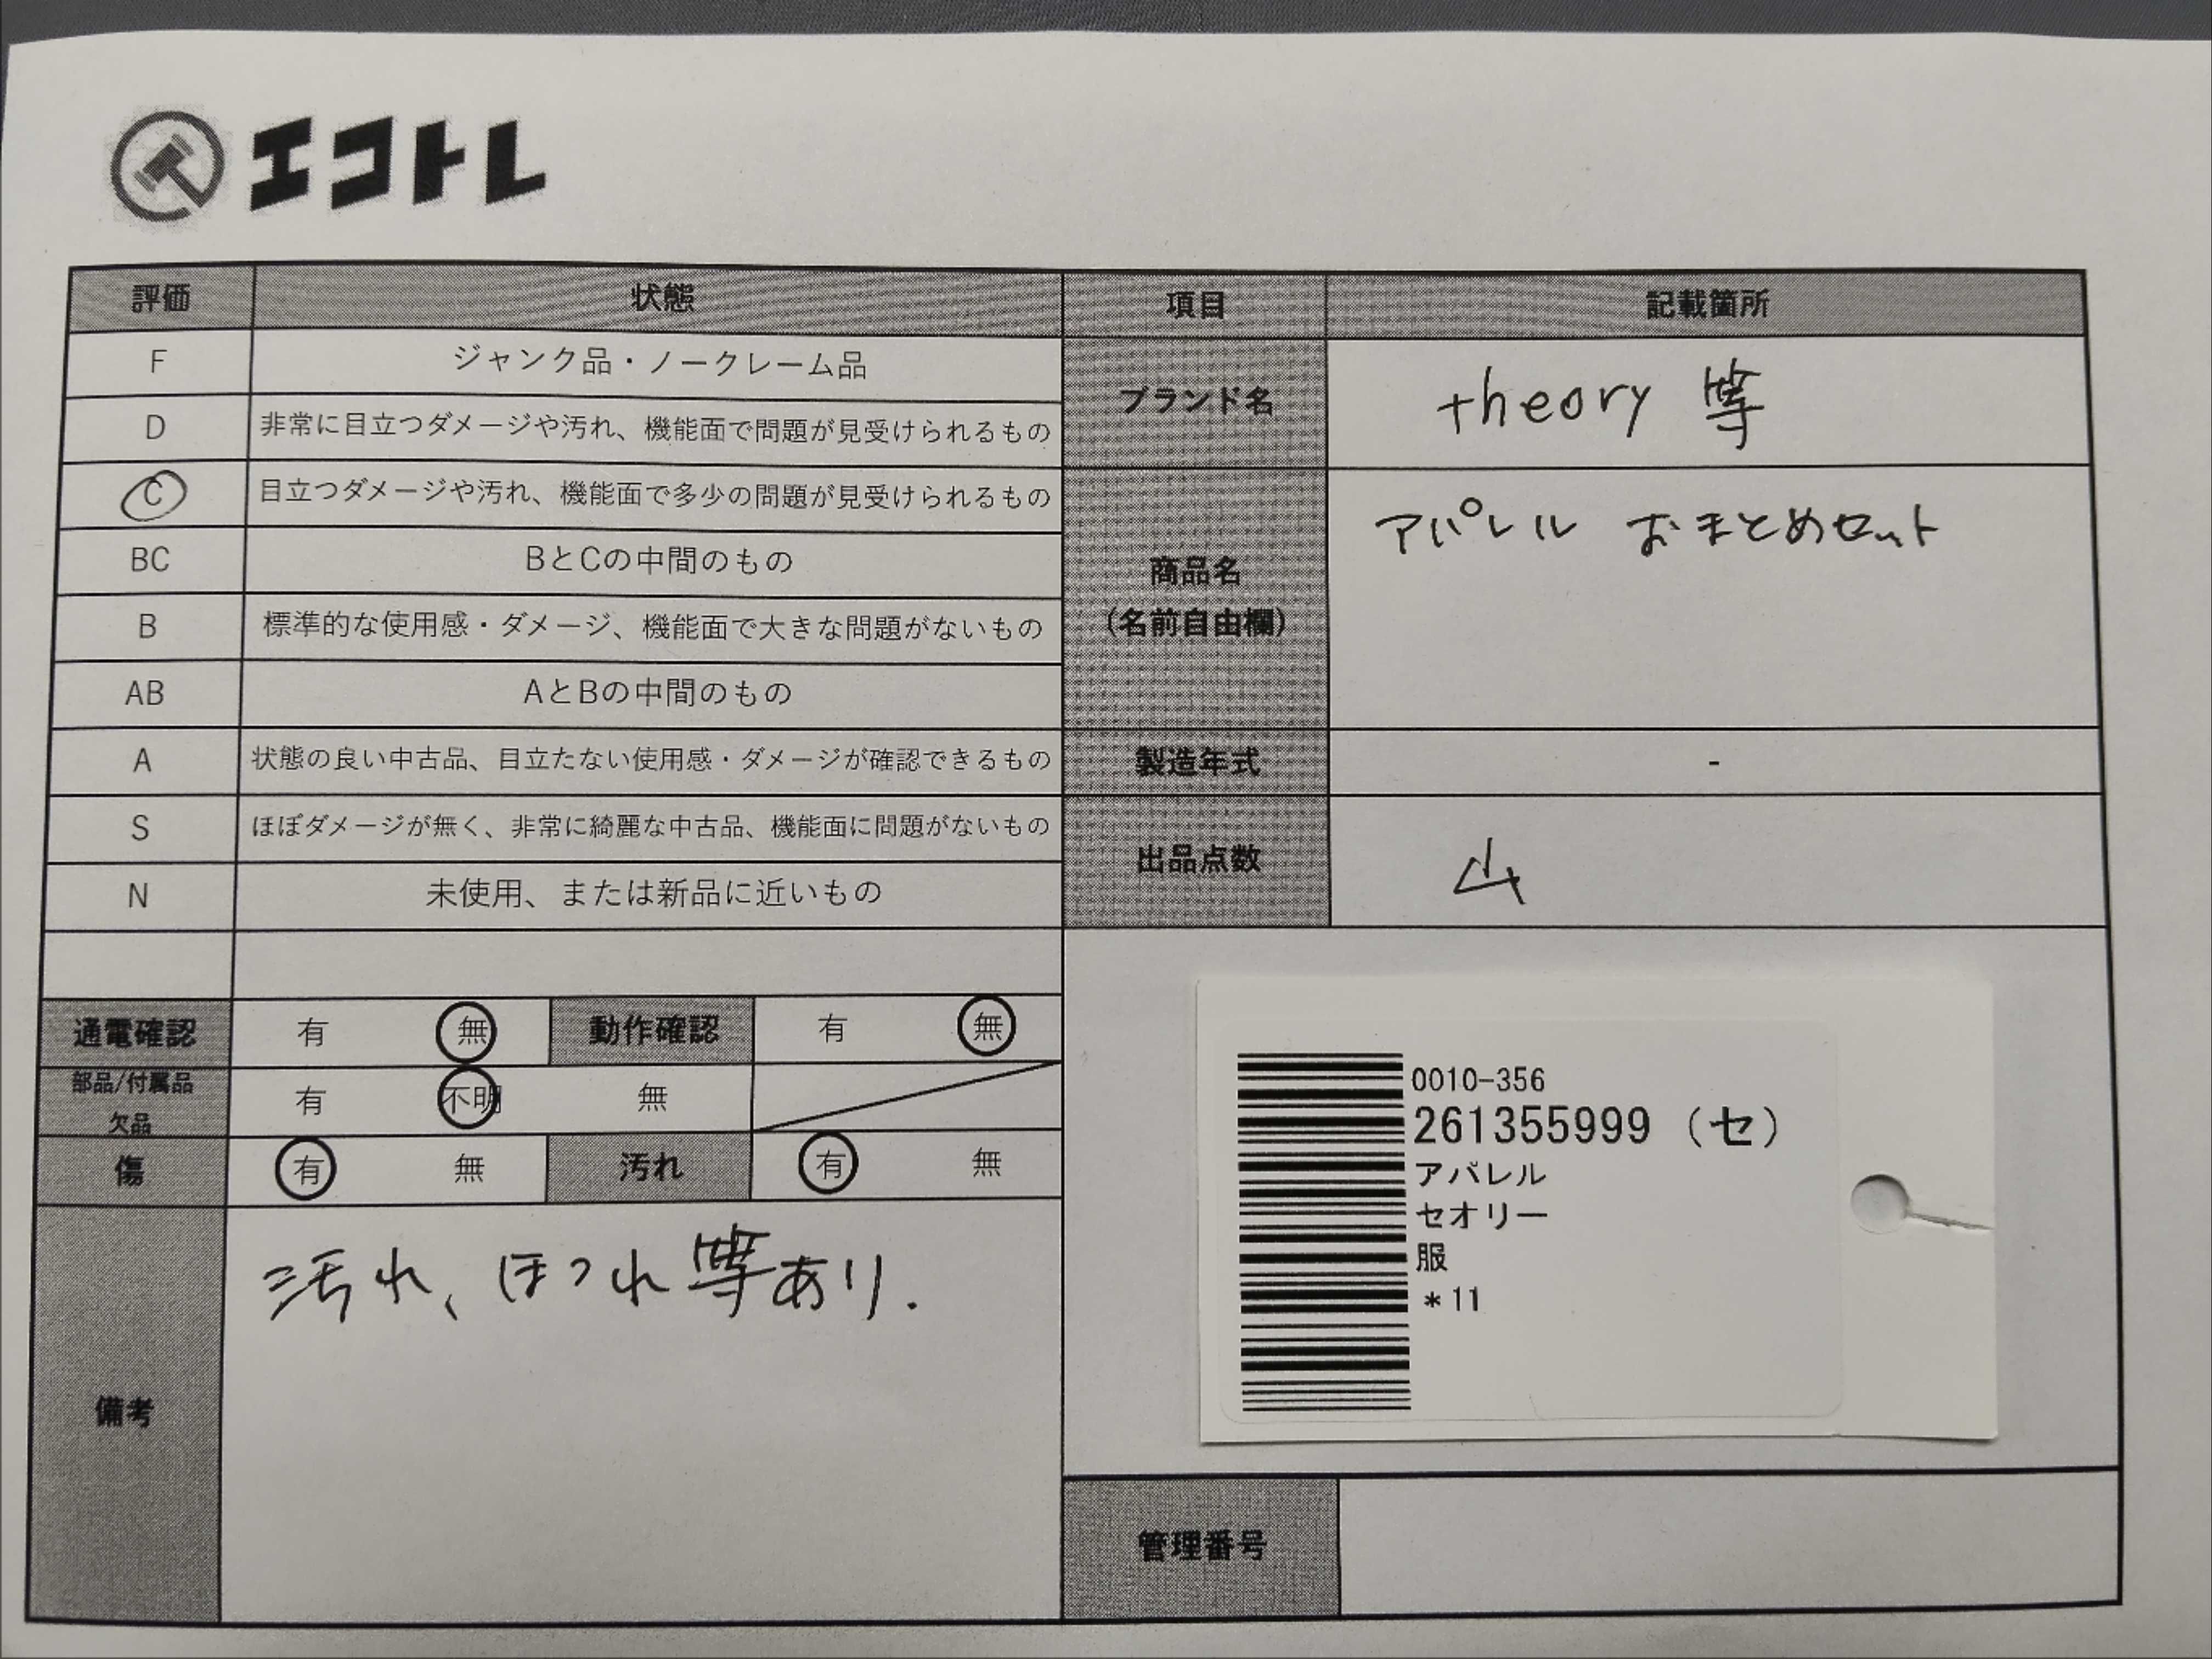 エコトレ
評価 状態 項目 記載箇所
F ジャンク品・ノークレーム品
D 非常に目立つダメージや汚れ、機能面で問題が見受けられるもの
C 目立つダメージや汚れ、機能面で多少の問題が見受けられるもの
BC BとCの中間のもの
B 標準的な使用感・ダメージ、機能面で大きな問題がないもの
AB AとBの中間のもの
A 状態の良い中古品、目立たない使用感・ダメージが確認できるもの
S ほぼダメージが無く、非常に綺麗な中古品、機能面に問題がないもの
N 未使用、または新品に近いもの
ブランド名 theory 等
商品名 アパレル おまとめセット
(名前自由欄)
製造年式 -
出品点数 山
通電確認 有 無 動作確認 有 無
部品/付属品
欠品 有 不明 無
傷 有 無 汚れ 有 無
備考 汚れ、ほつれ等あり.
0010-356
261355999 (セ)
アパレル
セオリー
服
*11
管理番号